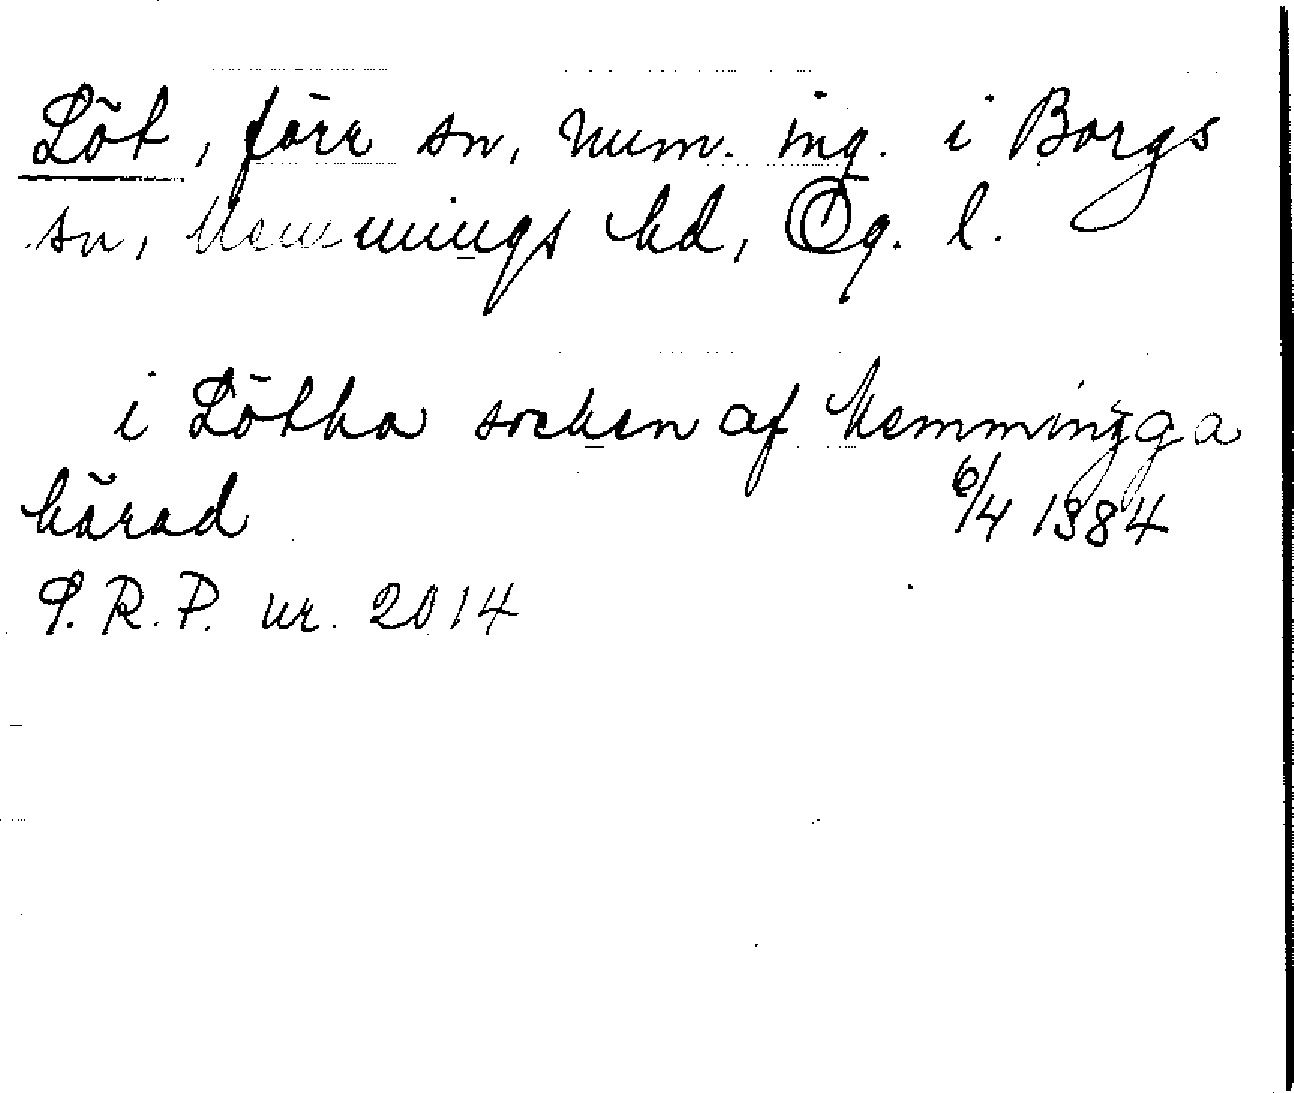 Löt, förr sn, num. ing. i Borgs
sn, Memmings hd, Ög. l.
i Lötha socken af Memmingga
härad 6/4 1384
P.R.P. nr. 2014